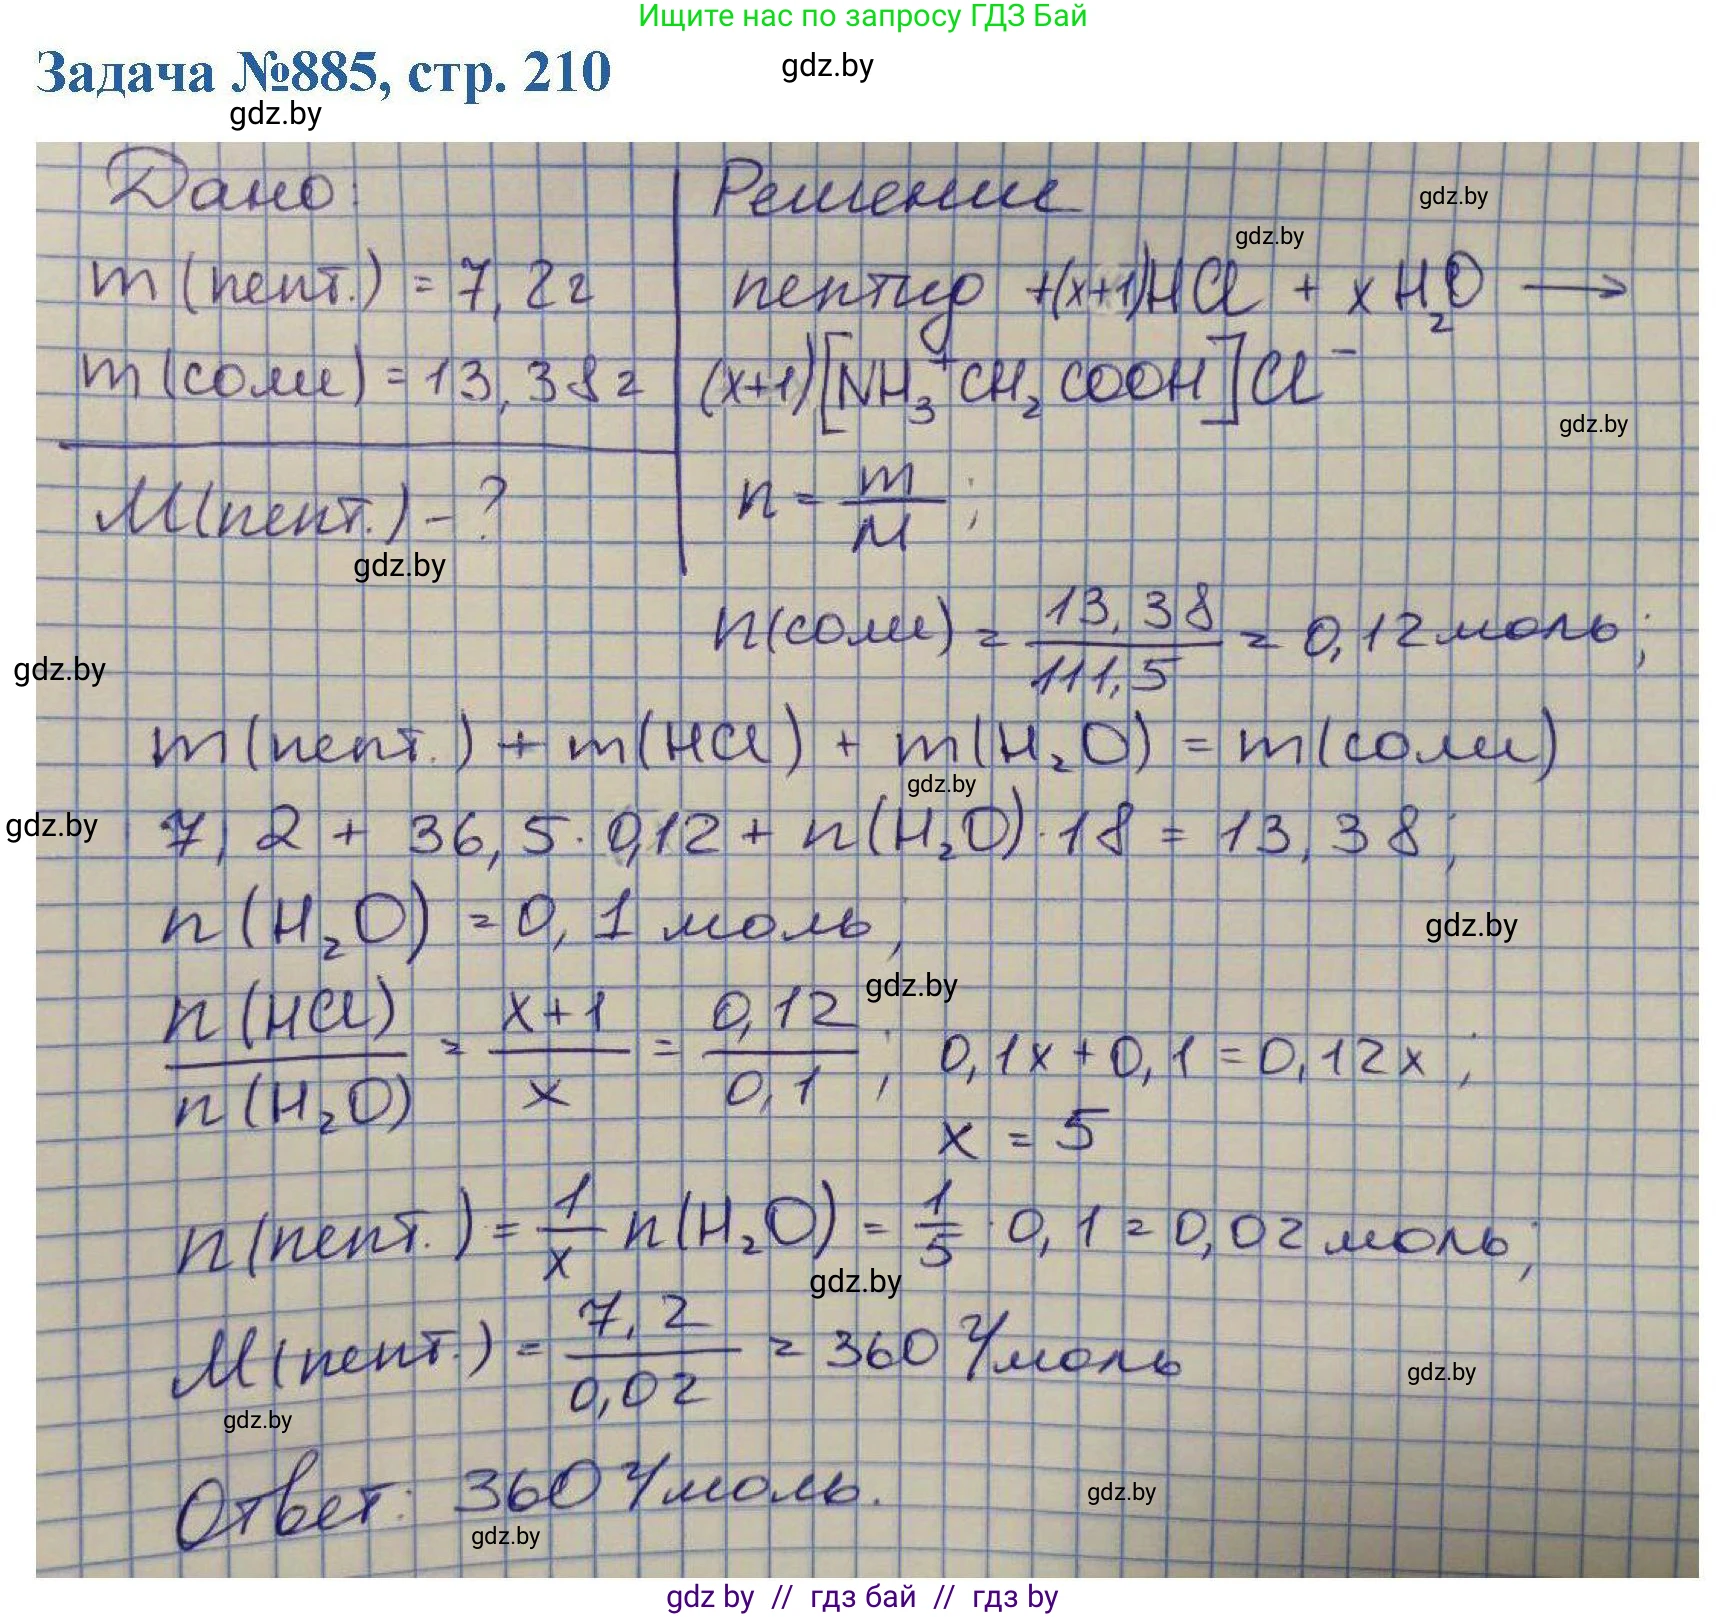 Ищите нас по запросу ГДЗ Бай
Задача №885, стр. 210
gdz.by
gdz.by
Дано:
m(пепт.) = 7,2г
m(соли) = 13,38г
M(пепт.) - ?
gdz.by
Решение
gdz.by
gdz.by
пептид +(x+1)HCl + xH₂O →
(x+1)[NH₃⁺CH₂COOH]Cl⁻
gdz.by
n = m/M;
n(соли) = 13,38/111,5 = 0,12 моль;
gdz.by
m(пепт.) + m(HCl) + m(H₂O) = m(соли)
gdz.by
gdz.by
7,2 + 36,5·0,12 + n(H₂O)·18 = 13,38;
n(H₂O) = 0,1 моль;
gdz.by
gdz.by
n(HCl)/n(H₂O) = x+1/x = 0,12/0,1; 0,1x + 0,1 = 0,12x;
x = 5
n(пепт.) = 1/x n(H₂O) = 1/5 · 0,1 = 0,02 моль;
gdz.by
M(пепт.) = 7,2/0,02 = 360 г/моль
gdz.by
gdz.by
Ответ: 360 г/моль.
gdz.by
gdz.by
gdz by // гдз бай // гдз by